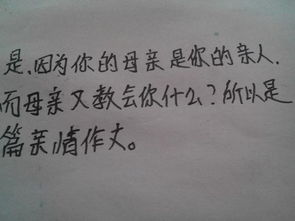 是.因为你的母亲是你的亲人.
而母亲又教会你什么?所以是
篇亲情作文。